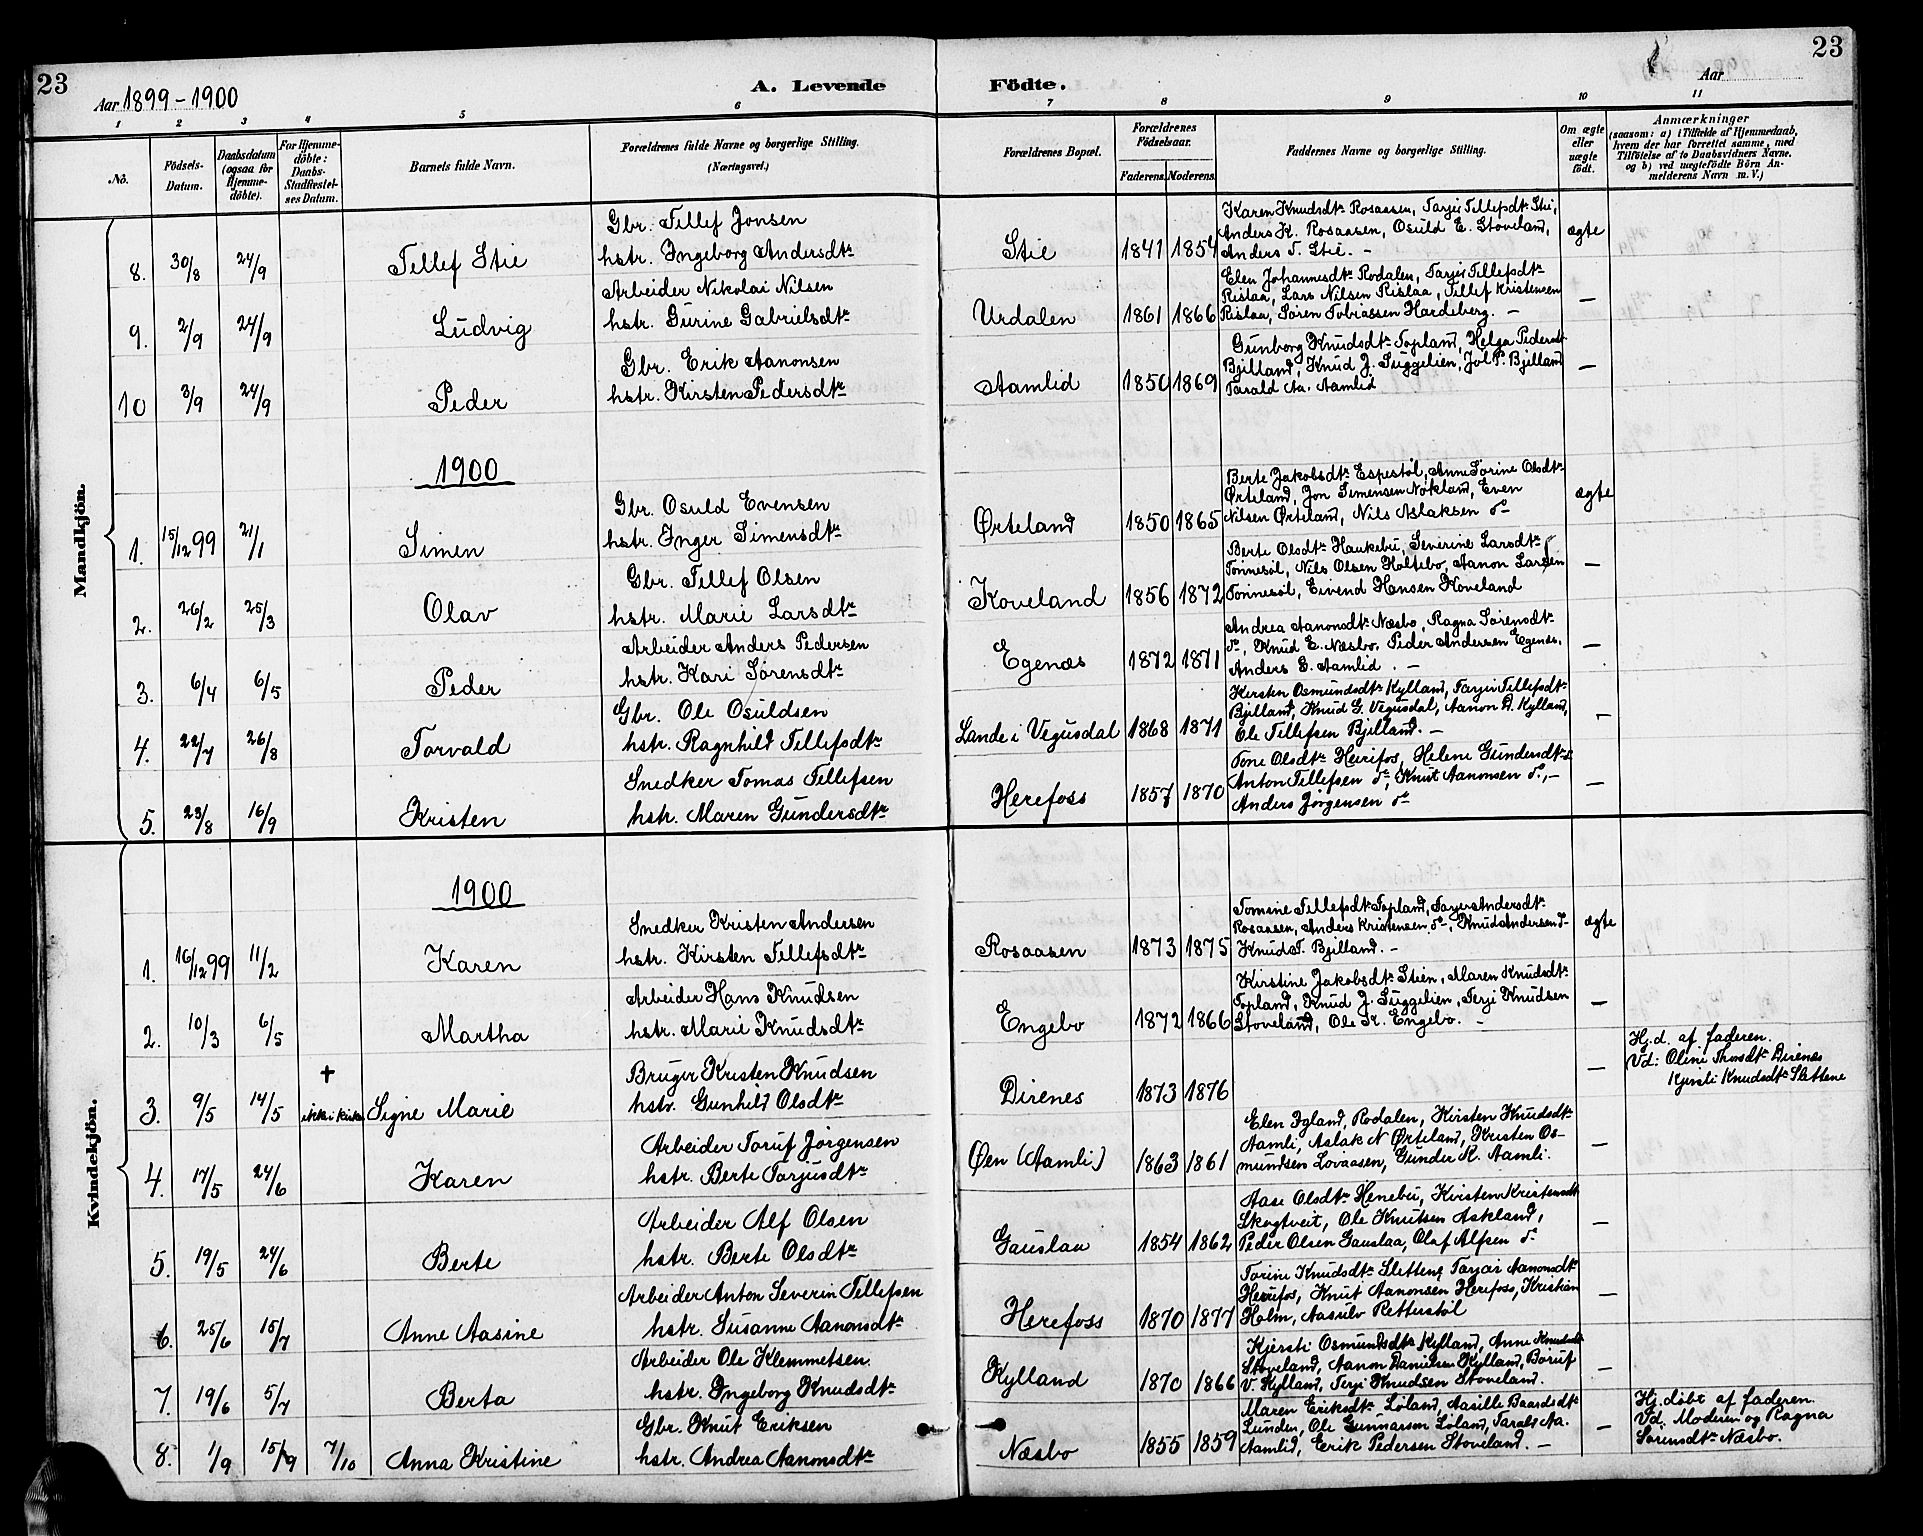 23
23
Aar 1899-1900
A. Levende
Födte.
Aar
1 2 3 4 5 6 7 8 9 10 11
No.
Födsels-Datum.
Daabsdatum (ogsaa for Hjemmedöbte).
For Hjemmedöbte: Daabs-Stadfæstelses Datum.
Barnets fulde Navn.
Forældrenes fulde Navne og borgerlige Stilling. (Næringsvei.)
Forældrenes Bopæl.
Forældrenes Födselsaar.
Faderens. Moderens.
Faddernes Navne og borgerlige Stilling.
Om ægte eller uægte födt.
Anmærkninger
(saasom: a) i Tilfælde af Hjemmedaab, hvem der har forrettet samme, med Tilföielse af to Daabsvidners Navne. og b) ved uægtefödte Börn Anmelderens Navn m. V.)
Mandkjön.
8. 30/8 24/9 Tellef Stie
Gbr. Tellef Jonsen
hstr. Ingeborg Andersdtr
Stie 1841 1854
Karen Knudsdtr Rosaasen, Tarjer Tellefsdtr Stie,
Anders K. Rosaasen, Osuld E. Stoveland,
Anders T. Stie. —
ægte
9. 2/9 24/9 Ludvig
Arbeider Nikolai Nilsen
hstr. Gurine Gabrielsdtr
Urdalen 1861 1866
Elen Johannesdtr Rodalen, Tarjer Tellefsdtr
Rislaa, Lars Nilsen Rislaa, Tellef Kristensen
Rislaa, Søren Tobiassen Hardeberg. —
—
10 3/9 24/9 Peder
Gbr. Erik Aanonsen
hstr. Kirsten Pedersdtr
Aamlid 1850 1869
Gunborg Knudsdtr Topland, Helga Pedersdtr
Bjilland, Knud J. Suggelien, Jol P. Bjilland
Tarald Aa. Aamlid
—
1900
1. 15/12 99 21/1 Simen
Gbr. Osuld Evensen
hstr. Inger Simensdtr
Ørteland 1850 1865
Berte Jakobsdtr Espestøl, Anne Sorine Olsdtr
Ørteland, Jon Simensen Nokland, Even
Nilsen Ørteland, Nils Aslaksen do
ægte
2. 26/2 25/3 Olav
Gbr. Tellef Olsen
hstr. Marie Larsdtr
Koveland 1856 1872
Berte Olsdtr Haukebu, Severine Larsdtr
Tonnesøl, Nils Olsen Holtebo, Aanon Larsen
Tonnesøl, Eivend Hansen Hoveland
—
3. 6/4 6/5 Peder
Arbeider Anders Pedersen
hstr. Kari Sørensdtr
Egenæs 1872 1871
Andrea Aanonsdtr Næsbo, Ragna Sørensdtr
do, Knud E. Næsbo, Peder Andersen Egenæs,
Anders G. Aamlid. —
—
4. 22/7 26/8 Torvald
Gbr. Ole Osuldsen
hstr. Ragnhild Tellefsdtr
Lande i Vegusdal 1868 1871
Kirsten Osmundsdtr Kylland, Tarjer Tellefsdtr
Bjilland, Knud G. Vegusdal, Aanon D. Kylland,
Ole Tellefsen Bjilland. —
—
5. 23/8 16/9 Kristen
Snedker Tomas Tellefsen
hstr. Maren Gundersdtr
Herefoss 1857 1870
Tone Olsdtr Herefos, Helene Gundersdtr
Anton Tellefsen do, Knut Aanonsen do, —
Anders Jørgensen do
—
Kvindekjön.
1900
1. 16/12 99 11/2 Karen
Snedker Kristen Andersen
hstr. Kirsten Tellefsdtr
Rosaasen 1873 1875
Tomine Tellefsdtr Topland, Tarjer Andersdtr
Rosaasen, Anders Kristensen do, Knud Andersen do
Knud T. Bjilland. —
ægte
2. 10/3 6/5 Martha
Arbeider Hans Knudsen
hstr. Marie Knudsdtr
Engebo 1872 1866
Kirstine Jakobsdtr Stein, Maren Knudsdtr
Topland, Knud J. Suggelien, Terje Knudsen
Stoveland, Ole K. Engebo. —
—
3. 9/5 14/5 † ikke i kirke Signe Marie
Bruger Kristen Knudsen
hstr. Gunhild Olsdtr
Direnes 1873 1876
—
Hj.d. af faderen.
Vd: Oline Thorsdtr Direnæs
Kjersti Knudsdtr Slettene
4. 17/5 24/6 Karen
Arbeider Toruf Jørgensen
hstr. Berte Tarjusdtr
Øen (Aamli) 1863 1861
Elen Igland, Rodalen, Kirsten Knudsdtr
Aamli, Aslak N Ørteland, Kristen Os-
mundsen Lovaasen, Gunder K. Aamli.
—
5. 19/5 24/6 Berte
Arbeider Alf Olsen
hstr. Berte Olsdtr
Gauslaa 1854 1862
Aase Olsdtr Henebu, Kirsten Kristensdtr
Skogtveit, Ole Knutsen Askland,
Peder Olsen Gauslaa, Olaf Alfsen do
—
6. 25/6 15/7 Anne Aasine
Arbeider Anton Severin Tellefsen
hstr. Susanne Aanonsdtr
Herefoss 1870 1877
Torine Knudsdtr Slettene, Tarjer Aanonsdtr
Herefos, Knut Aanonsen Herefoss, Kristian
Holm, Aasulv Rettestøl
—
7. 19/6 5/7 Berta
Arbeider Ole Klemmetsen.
hstr. Ingeborg Knudsdtr
Kylland 1870 1866
Kjersti Osmundsdtr Kylland, Anne Knudsdtr
Stoveland, Aanon Danielsen Kylland, Boruf
V. Kylland, Terje Knudsen Stoveland.
—
8. 1/9 15/9 7/10 Anna Kristine
Gbr. Knut Eriksen
hstr. Andrea Aanonsdtr
Næsbo 1855 1859
Maren Eriksdtr Løland, Aasille Baardsdtr
Lunden, Ole Gunnarson Løland, Tarald Aa.
Aamlid, Eerik Pedersen Stoveland. —
—
Hj.døbt af faderen.
Vd: Moderen og Ragna
Sørensdtr Næsbo.